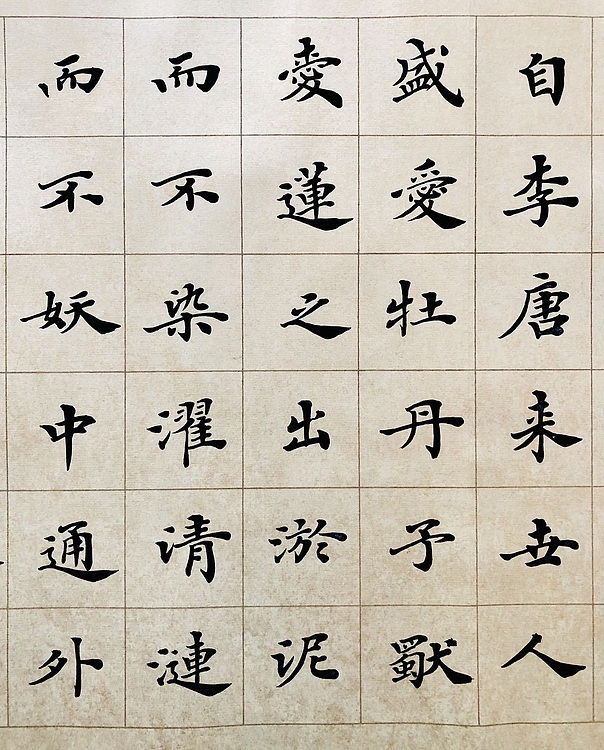 自李唐来世人
盛愛牡丹予獨
愛蓮之出淤泥
而不染濯清漣
而不妖中通外